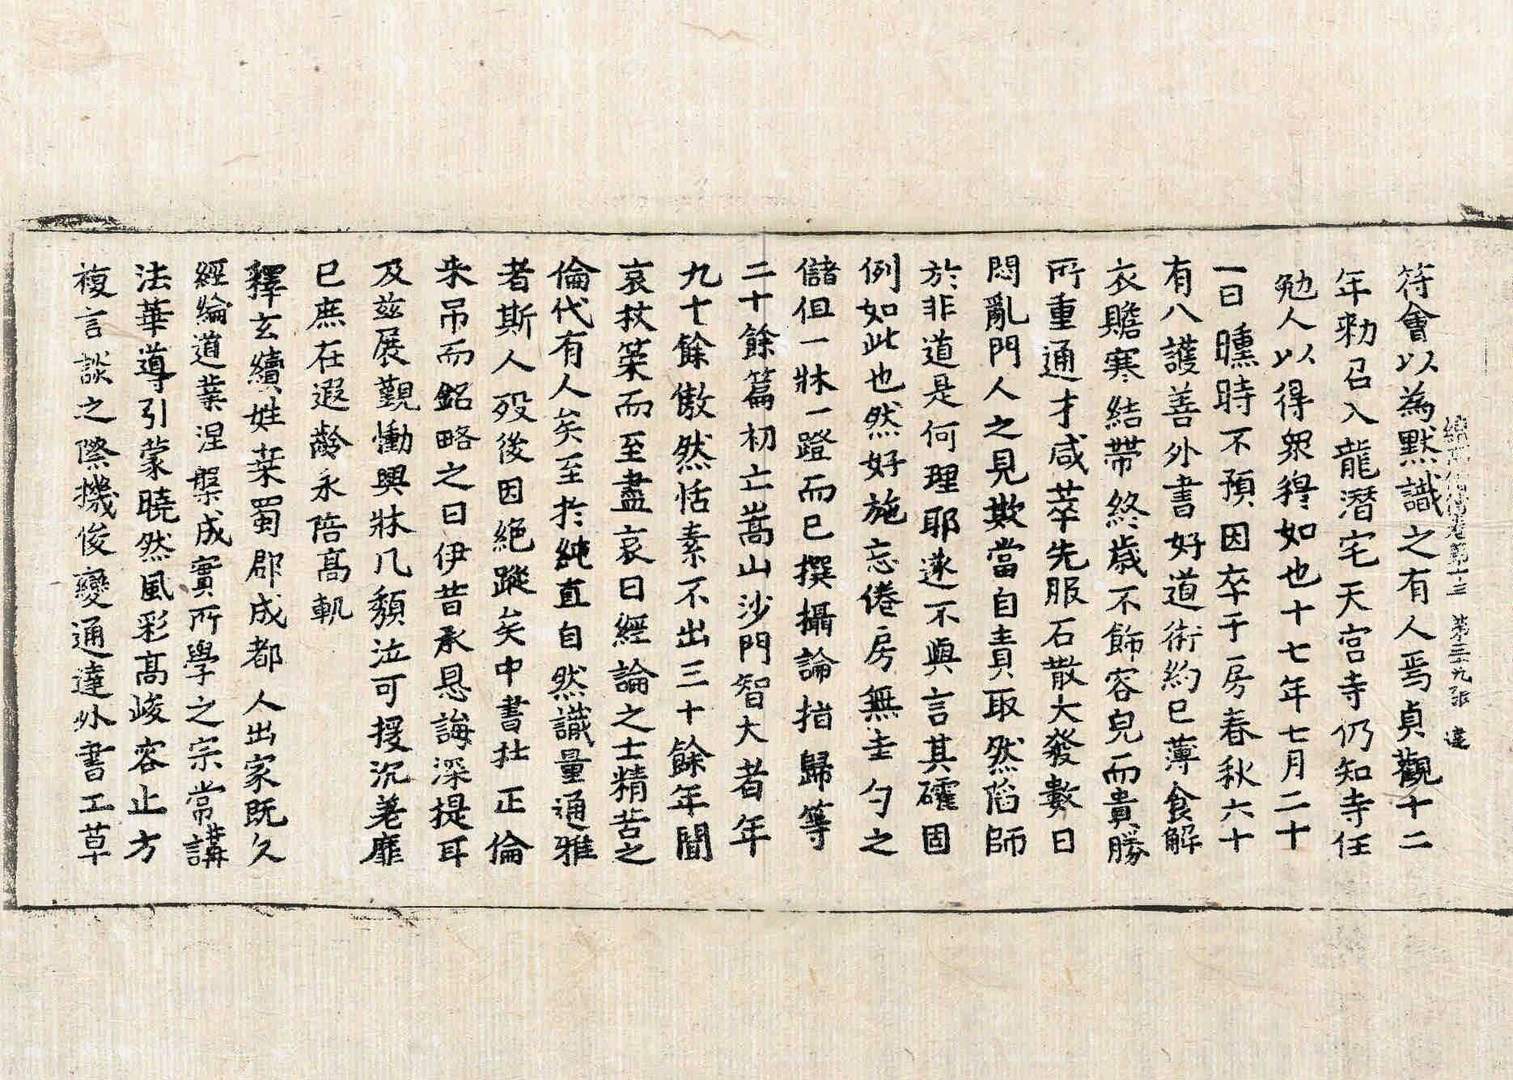 續高僧傳卷第十三 第三十九張 達
符會以為默識之有人焉貞觀十二
年勑召入龍潛宅天宮寺仍知寺任
勉人以得衆穆如也十七年七月二十
一日曛時不預因卒于房春秋六十
有八護善外書好道術約已薄食解
衣贍寒結帶終歳不飾容皃而貴勝
所重通才咸萃先服石散大發數日
悶亂門人之見欺當自責取然陷師
於非道是何理耶遂不與言其確固
例如此也然好施忘倦房無圭勺之
儲但一牀一蹬而已撰攝論指歸等
二十餘篇初亡嵩山沙門智大者年
九十餘慠然恬素不出三十餘年聞
哀杖策而至盡哀曰經論之士精苦之
倫代有人矣至於純直自然識量通雅
者斯人歿後因絕蹤矣中書杜正倫
来吊而銘略之曰伊昔承恩誨深提耳
及茲展覲慟興牀几頽泣可援沉茖靡
已庶在遐齡永陪髙軌
釋玄續姓桒蜀郡成都人出家既久
經綸道業涅槃成實所學之宗常講
法華導引蒙曉然風彩髙峻容止方
複言談之際機俊變通達外書工草